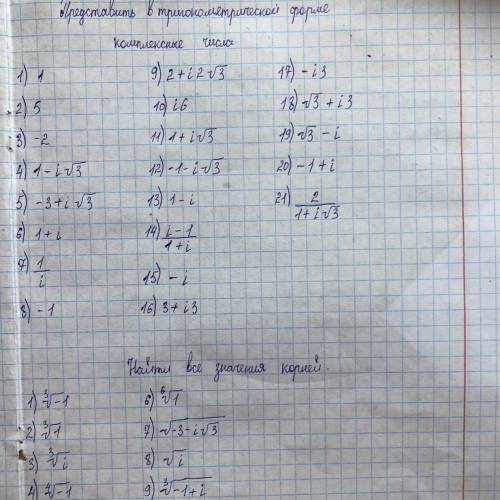 Представить в тригонометрической форме
комплексные числа
1) 1
2) 5
3) -2
4) 1-i√3
5) -3+i√3
6) 1+i
7) 1/i
8) -1
9) 2+i2√3
10) i6
11) 1+i√3
12) -1-i√3
13) 1-i
14) i-1/1+i
15) -i
16) 3+i3
17) -i3
18) √3+i3
19) √3-i
20) -1+i
21) 2/1+i√3
Найти все значения корней.
1) ³√-1
2) ³√1
3) ³√i
4) ⁴√-1
6) ⁶√1
7) √-3-i√3
8) √i
9) ³√-1+i